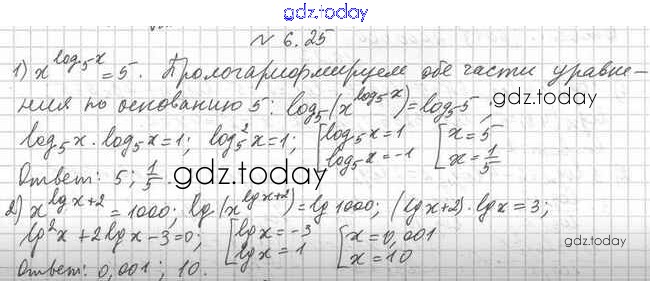 gdz.today
№ 6.25
1) x^{log_5 x} = 5. Прологарифмируем обе части уравне-
ния по основанию 5: log_5 (x^{log_5 x}) = log_5 5,
gdz.today
log_5 x · log_5 x = 1; log_5^2 x = 1; [log_5 x = 1 [x = 5
log_5 x = -1 x = 1/5
Ответ: 5; 1/5.
gdz.today
2) x^{lg x + 2} = 1000; lg (x^{lg x + 2}) = lg 1000; (lg x + 2) · lg x = 3;
lg^2 x + 2 lg x - 3 = 0; [lg x = -3 [x = 0,001
lg x = 1 x = 10
gdz.today
Ответ: 0,001; 10.